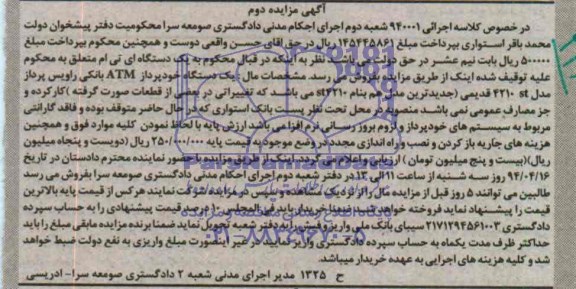 آگهی مزایده دوم
در خصوص کلاسه اجرائی ۹۴۰۰۰۱ شعبه دوم اجرای احکام مدنی دادگستری صومعه سرا محکومیت دفتر پیشخوان دولت
محمد باقر استواری بپرداخت مبلغ ۱۴۵۴۴۵۸۶۱ ریال در حق اقای حسن واقعی دوست و همچنین محکوم بپرداخت مبلغ
۵۰۰۰۰۰ ریال بابت نیم عشر در حق دولت می باشد. نظر به اینکه در قبال محکوم به یک دستگاه ای تی ام متعلق به محکوم
علیه توقیف شده اینک از طریق مزایده بفروش می رسد. مشخصات مال: یک دستگاه خودپرداز ATM بانکی راویس پرداز
مدل st ۴۲۱۰ قدیمی (جدیدترین مدل هم بنام st۴۲۱۰ می باشد که تغییراتی در بعضی از قطعات صورت گرفته) کارکرده و
جز مصارف عمومی نمی باشد. منصوبه در محل تحت نظر بانک استواری که در حال حاضر متوقف بوده و فاقد گارانتی
مربوط به سیستم های خودپرداز و لزوم بروز رسانی نرم افزا می باشد ارزش پایه با لحاظ نمودن کلیه موارد فوق و همچنین
هزینه های جاریه باز کردن و نصب و راه اندازی مجدد در وضع موجود به قیمت پایه ۲۵۰/۰۰۰/۰۰۰ ریال (دویست و پنجاه میلیون
ریال)(بیست و پنج میلیون تومان) ارزیابی و اعلام می گردد. اینک از طریق مزایده با حضور نماینده محترم دادستان در تاریخ
۹۴/۰۴/۱۶ روز سه شنبه از ساعت ۹۱ الی ۱۲ در دفتر شعبه دوم اجرای احکام مدنی دادگستری صومعه سرا بفروش می رسد
طالبین می توانند ۵ روز قبل از مزایده مال را از نزدیک مشاهده و سپس در مزایده شرکت نمایند هرکس از قیمت پایه بالاترین
قیمت را پیشنهاد نماید فروخته خواهد شد. ضمنا خریدار باید فی المجلس ۱۰ درصد قیمت پیشنهادی را به حساب سپرده
دادگستری ۲۱۷۱۲۹۴۵۶۱۰۰۳ سیبای بانک ملی واریز و فیش را به دفتر شعبه تحویل نماید ضمنا برنده مزایده مابقی مبلغ را باید
حداکثر ظرف مدت یکماه به حساب سپرده دادگستری واریز نمایند در غیر اینصورت مبلغ واریزی به نفع دولت ضبط خواهد
شد و کلیه هزینه های اجرایی به عهده خریدار میباشد.
ح ۱۳۲۵ مدیر اجرای مدنی شعبه ۲ دادگستری صومعه سرا- ادریسی